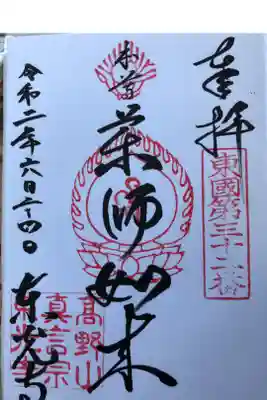 奉拝
東國第三十二番
本尊
薬師如来
令和二年六月二十四日
東光寺
高野山
真言宗
東光寺